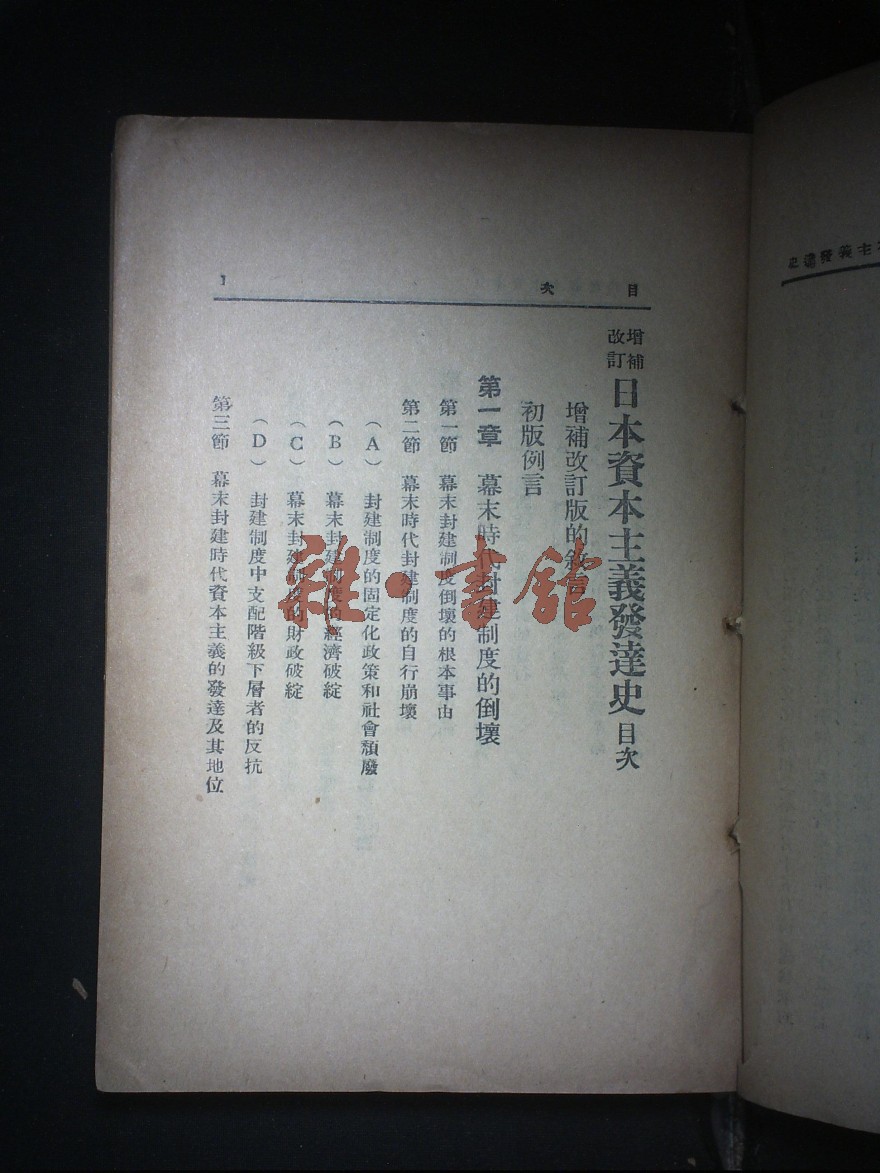 目次
1
增補改訂 日本資本主義發達史 目次
增補改訂版的敘言
初版例言
第一章 幕末時代封建制度的倒壞
第一節 幕末封建制度倒壞的根本事由
第二節 幕末時代封建制度的自行崩壞
(A) 封建制度的固定化政策和社會頹廢
(B) 幕末封建制度的經濟破綻
(C) 幕末封建制度的財政破綻
(D) 封建制度中支配階級下層者的反抗
第三節 幕末封建時代資本主義的發達及其地位
雜·書館
主義發達史